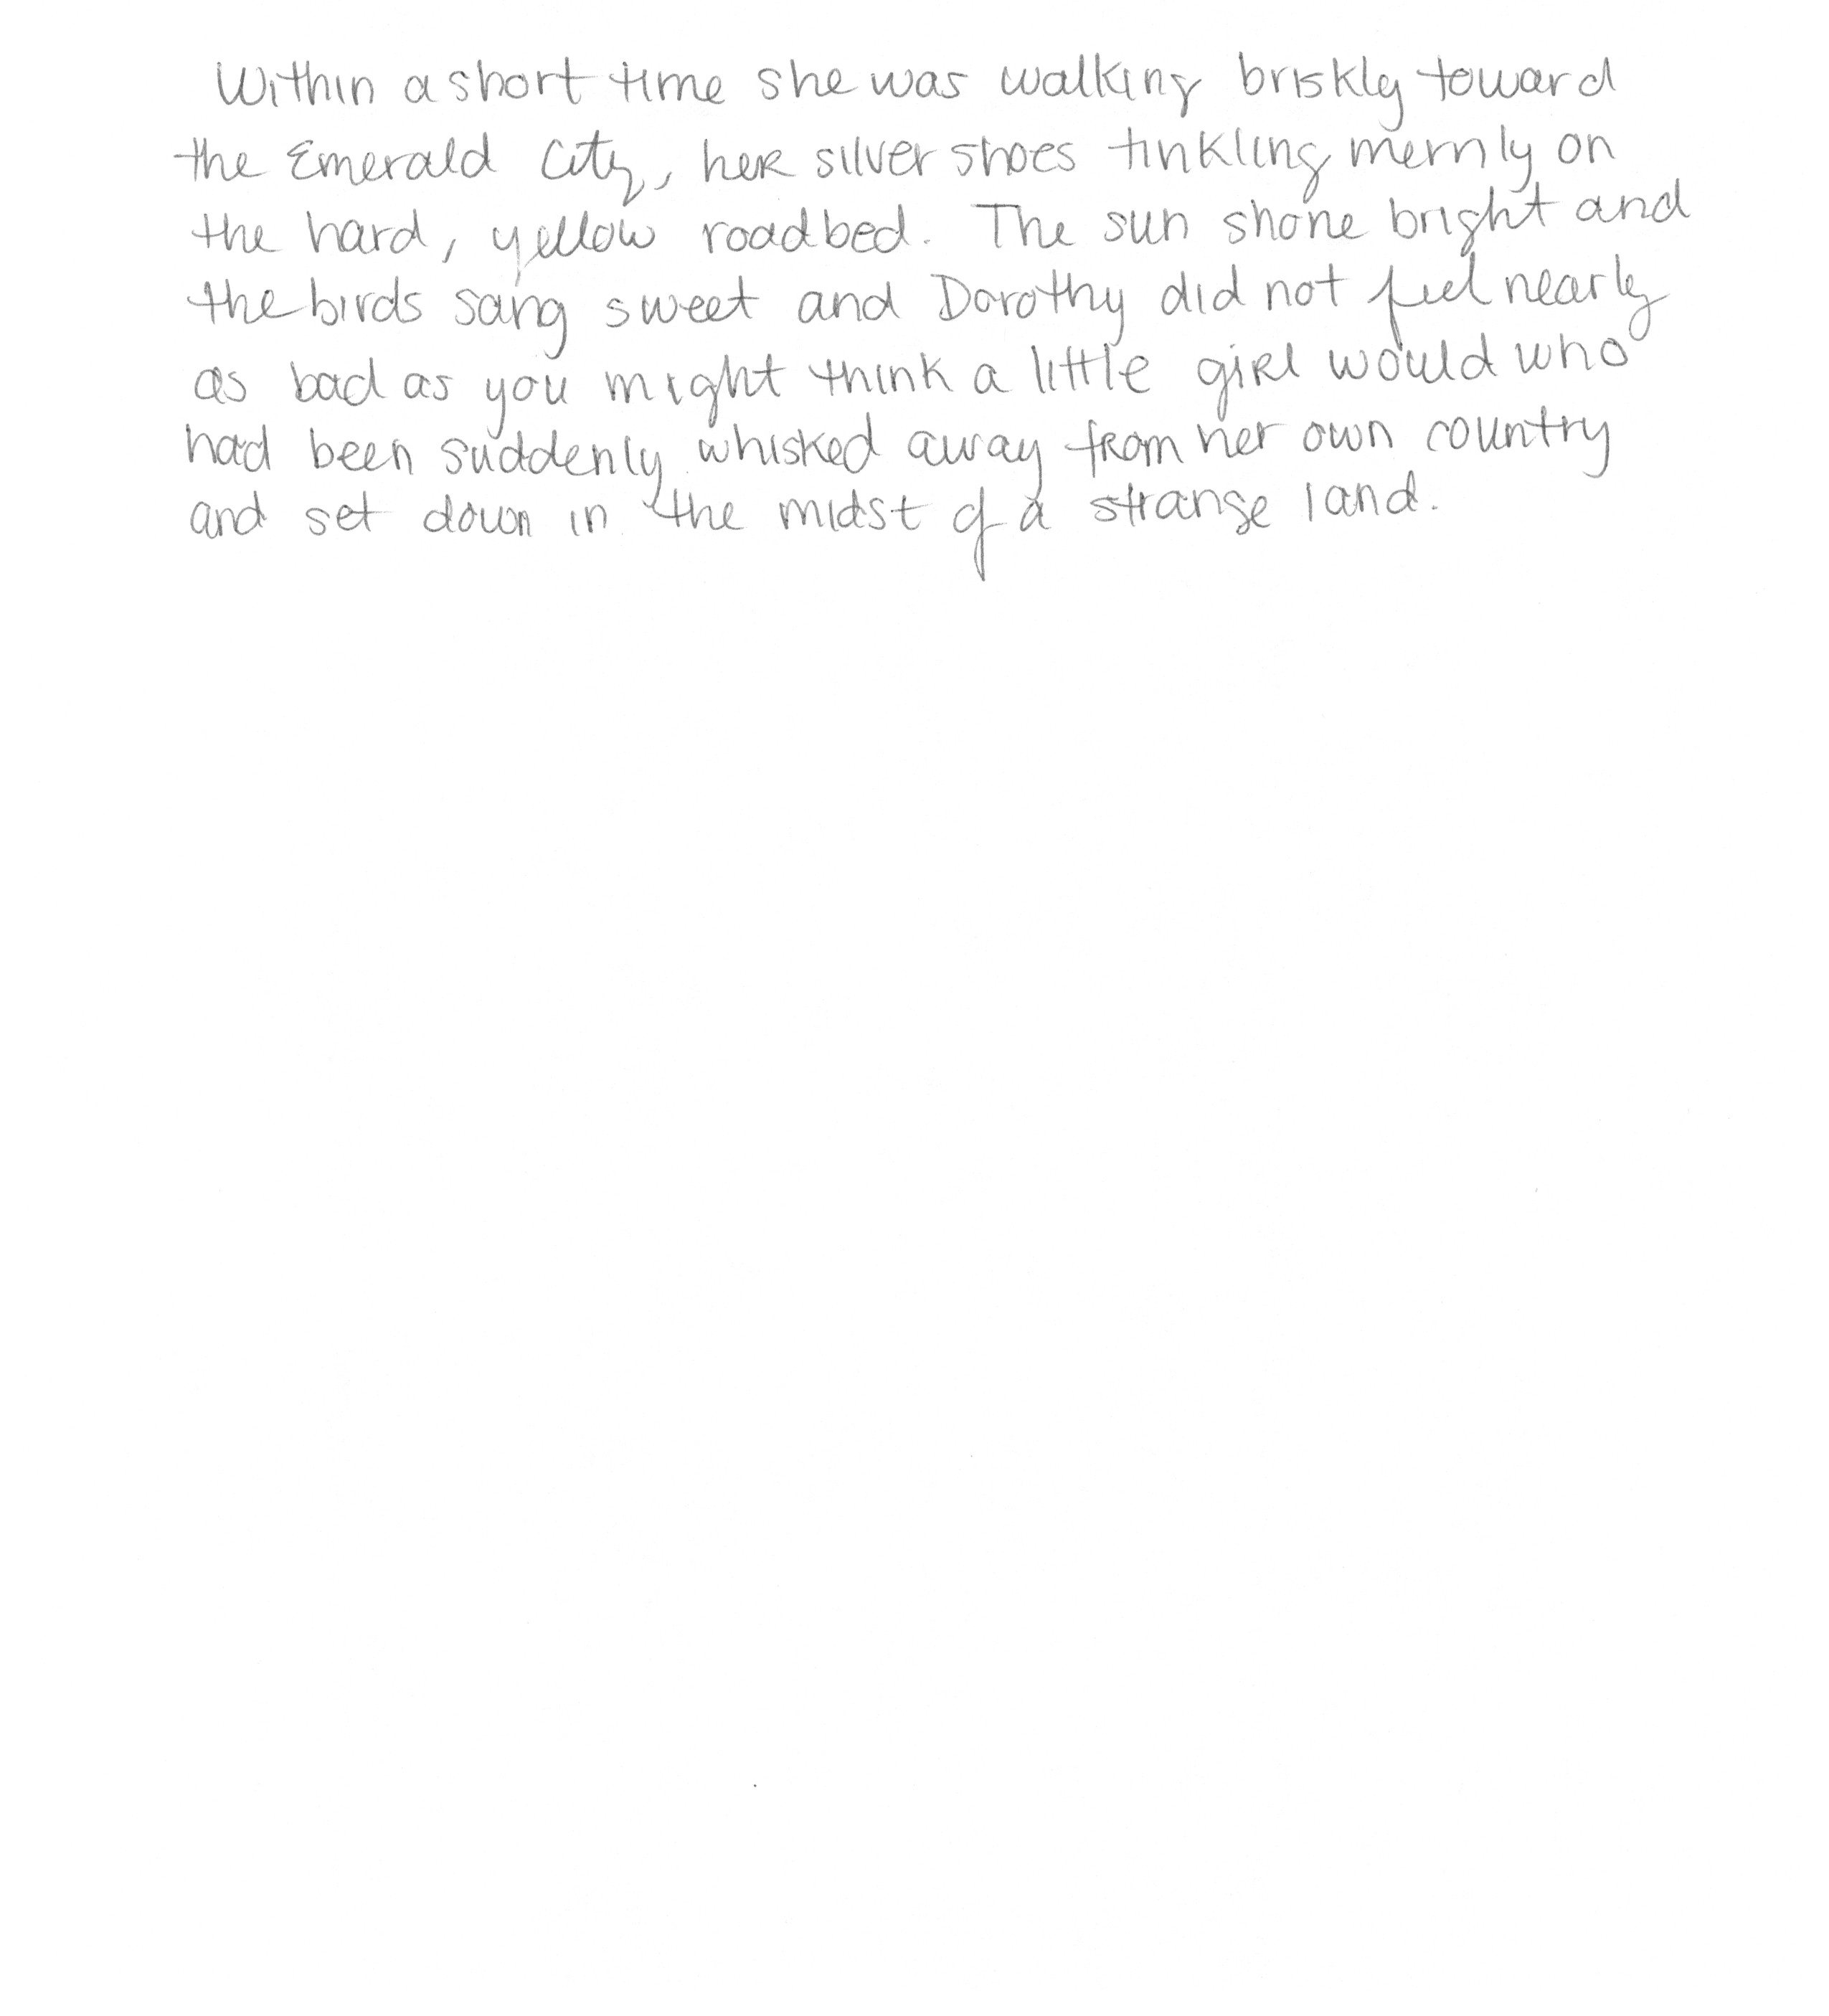 Within a short time she was walking briskly toward
the Emerald City, her silver shoes tinkling merrily on
the hard, yellow roadbed. The sun shone bright and
the birds sang sweet and Dorothy did not feel nearly
as bad as you might think a little girl would who
had been suddenly whisked away from her own country
and set down in the midst of a strange land.